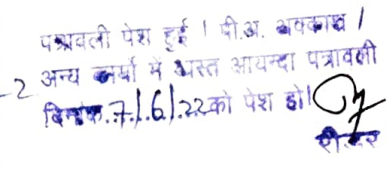 पत्रावली पेश हुई । पी.अ. अवकाश ।
-2 अन्य कार्यो में व्यस्त आयन्दा पत्रावली
दिनांक.7/.6/.22को पेश हो।
रीडर